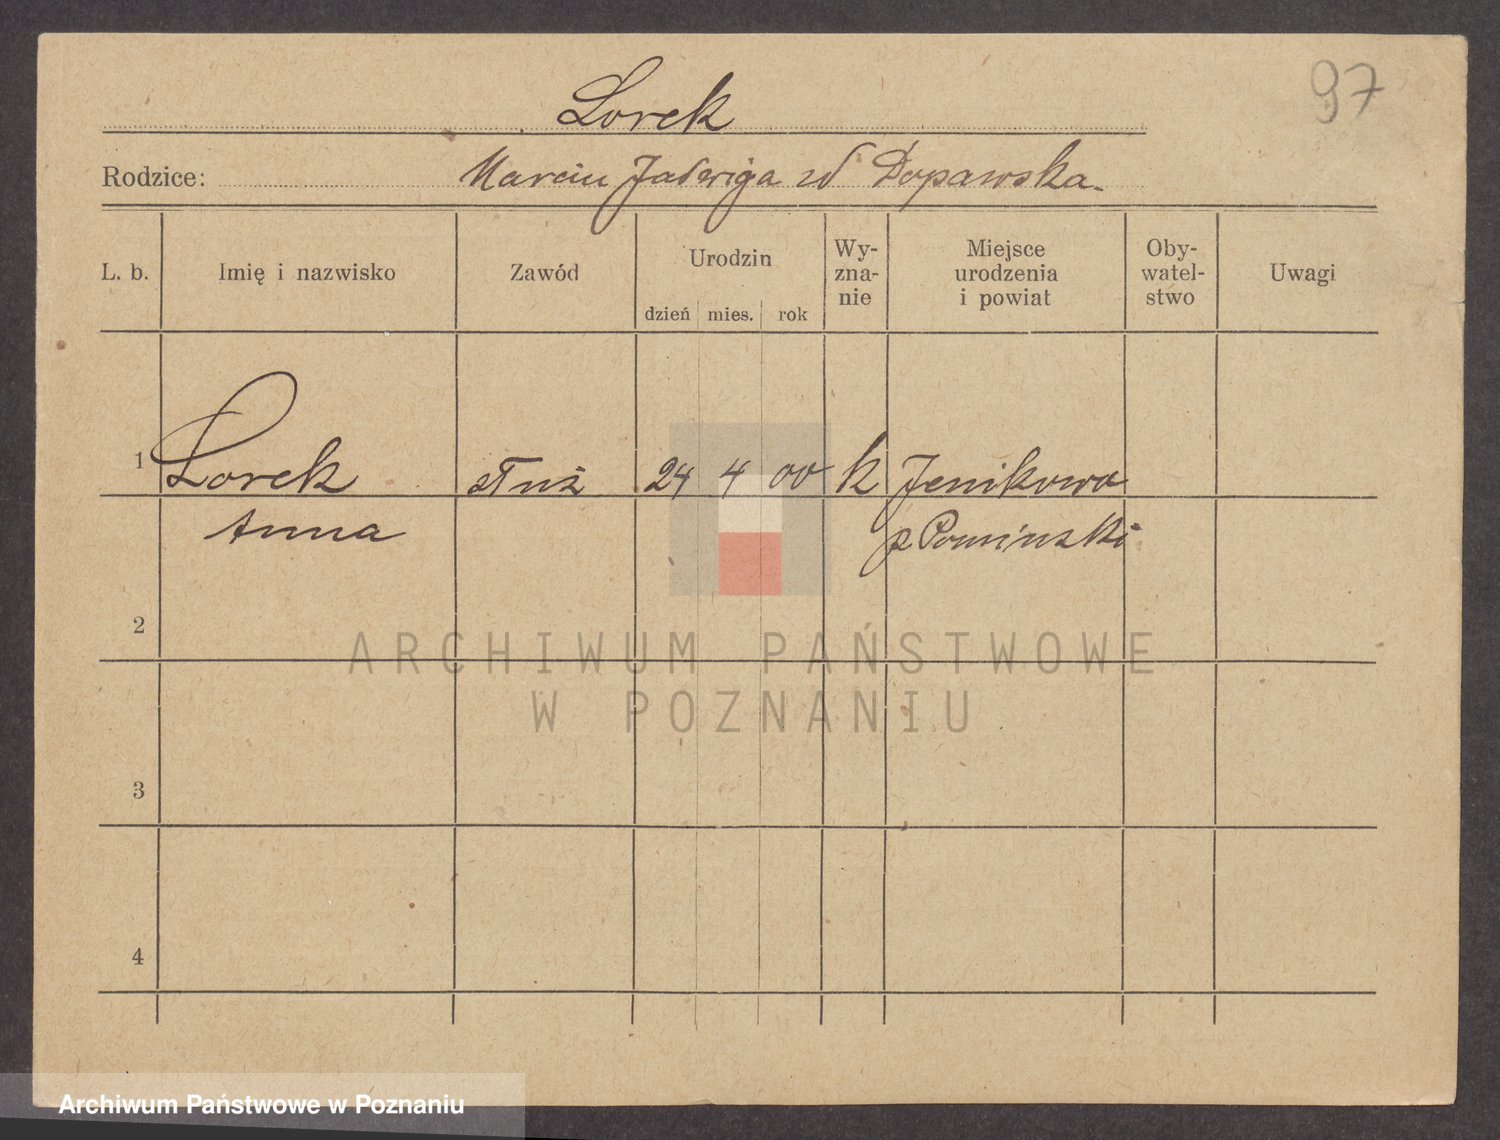 97
Lorek
Rodzice: Marcin Jadwiga zd
L. b. Imię i nazwisko Zawód Urodzin dzień mies. rok Wy-zna-nie Miejsce urodzenia i powiat Oby-watel-stwo Uwagi
1 Lorek służ 24 4 00 k Jenikowo
Anna p
2
3
4
ARCHIWUM PAŃSTWOWE
W POZNANIU
Archiwum Państwowe w Poznaniu